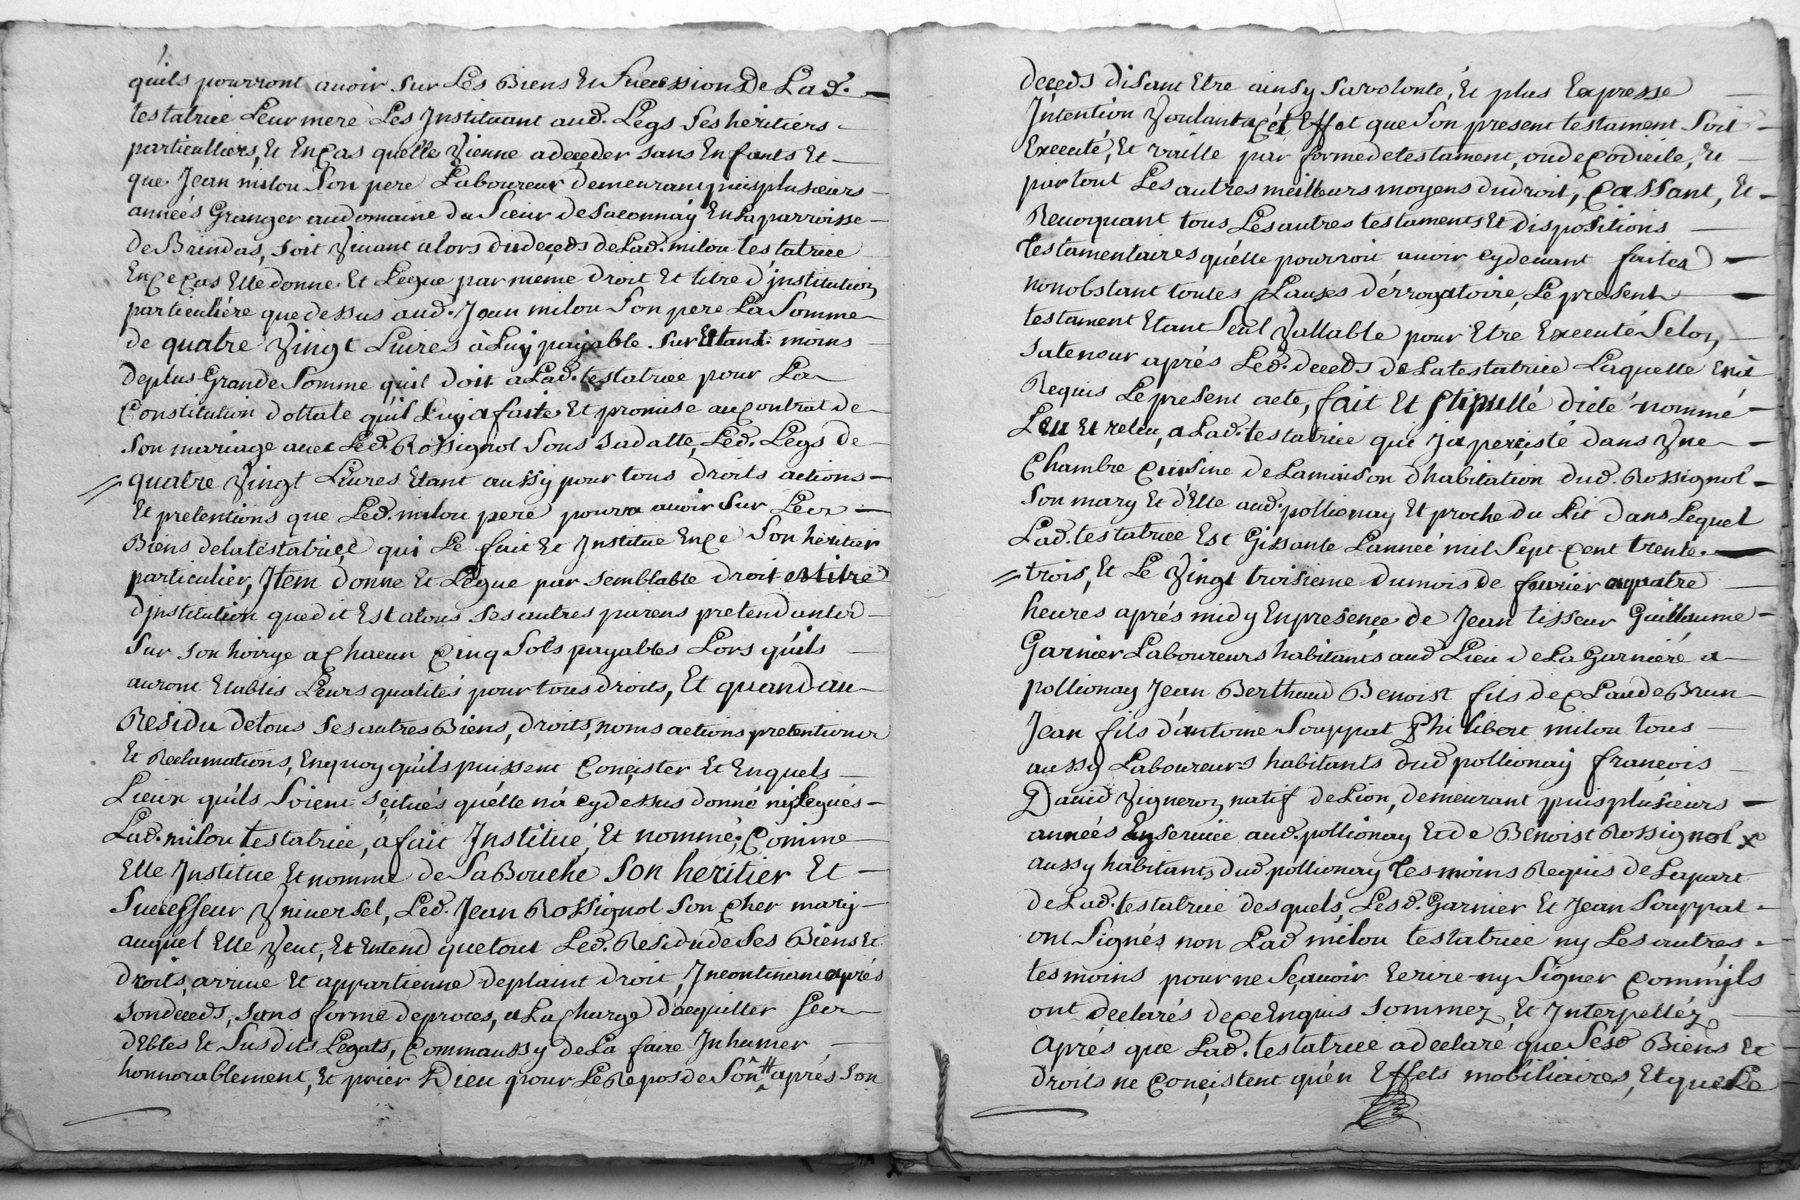 quils pourront avoir sur Les Biens Et Successions De Lad.
testatrice Leur mere Les Instituant aud. Legs ses héritiers
particulliers, Et En Cas quelle Vienne a deçeder sans Enfants Et
que Jean milou Son pere Laboureur demeurant puis plusieurs
années Granger au domaine du Sieur de Saconnay En La parroisse
de Brindas, soit Vivant alors du deçeds de Lad. milou testatrice
En Ce Cas Elle donne Et Legue par meme droit Et titre d'institution
particuliére que dessus aud. Jean milou Son pere La Somme
de quatre Vingt Livres à Luy payable sur Etant moins
de plus Grande Somme quil doit a Lad. testatrice pour La
Constitution dottale quil Luy a faite Et promise au Contrat de
son mariage avec Led. Rossignol Sous sa datte, Led. Legs de
quatre Vingt Livres Etant aussy pour tous droits actions
Et pretentions que Led. milou pere pourra avoir sur Les
Biens de la testatrice qui Le fait Et Institue En Ce Son héritier
particulier, Item donne Et Legue par semblable droit et titre
d'institution que dit Est a tous ses autres parens pretendants
sur son hoirye a Chacun Cinq Sols payables Lors quils
auront Etablis Leurs qualités pour tous droits, Et quand au
Residu de tous ses autres Biens, droits, noms actions pretentions
Et Reclamations, En quoy quils puissent Conçister Et En quels
Lieux quils Soient sçitués quélle n'a cy dessus donné ny Legués
Lad. milou testatrice, a fait Institué, Et nommé; Comme
Elle Institue Et nomme de Sa Bouche Son heritier Et
Successeur Vniversel, Led. Jean Rossignol Son Cher mary
auquel Elle Veut, Et Entend que tout Led. Residu de Ses Biens Et
droits, arrive Et appartienne de plaint droit, Incontinant aprés
son deceds, sans forme de procez, a La Charge d'acquitter Ses
debtes Et Susdits Legats, Comm aussy de La faire Inhumer
honnorablement, Et prier Dieu pour Le Repos de Son aprés Son
deçeds disant Etre ainsy sa volonté, Et plus Expresse
Intention Voulant a Cét Effet que Son present testament Soit
Executé, Et vaille par forme de testament, ou de Codicile, Et
par tout Les autres meilleurs moyens du droit, Cassant, Et
Revoquant tous Les autres testaments Et dispositions
testamentaires quélle pourroit avoir cy devant faites
nonobstant toutes Clauses dérrogatoire, Le present
testament Etant Seul Vallable pour Etre Executé Selon
sa teneur aprés Led. deceds de La testatrice Laquelle En a
Requis Le present acte, fait Et stipullé dicté nommé
Leu Et releu, a Lad. testatrice qui y a perçisté dans Vne
Chambre Cuisine de La maison d'habitation dud. Rossignol
Son mary Et d'Elle aud. pollionay Et proche du Lit dans Lequel
Lad. testatrice Est Gissante L'année mil Sept Cent trente
trois, Et Le Vingt troisieme du mois de fevrier a quatre
heures aprés midy En presençe de Jean tisseur Guillaume
Garnier Laboureurs habitants aud Lieu de La Garniere a
pollionay Jean Berthaud Benoist fils de Claude Brun
Jean fils d'antoine Souppat Philibert milou tous
aussy Laboureurs habitants dud pollionay françois
David Vigneron natif de Lion, demeurant puis plusieurs
années En service aud. pollionay Et de Benoist Rossignol
aussy habitants dud pollionay tesmoins Requis de La part
de Lad. testatrice desquels, Lesd. Garnier Et Jean Souppat
ont Signés non Lad milou testatrice ny Les autres
tesmoins pour ne Sçavoir Ecrire ny Signer Comm'ils
ont declarés de ce Enquis Sommez Et Interpellez
Aprés que Lad. testatrice a declaré que Sesd Biens Et
droits ne Conçistent qu'en Effets mobiliaires, Et que Le